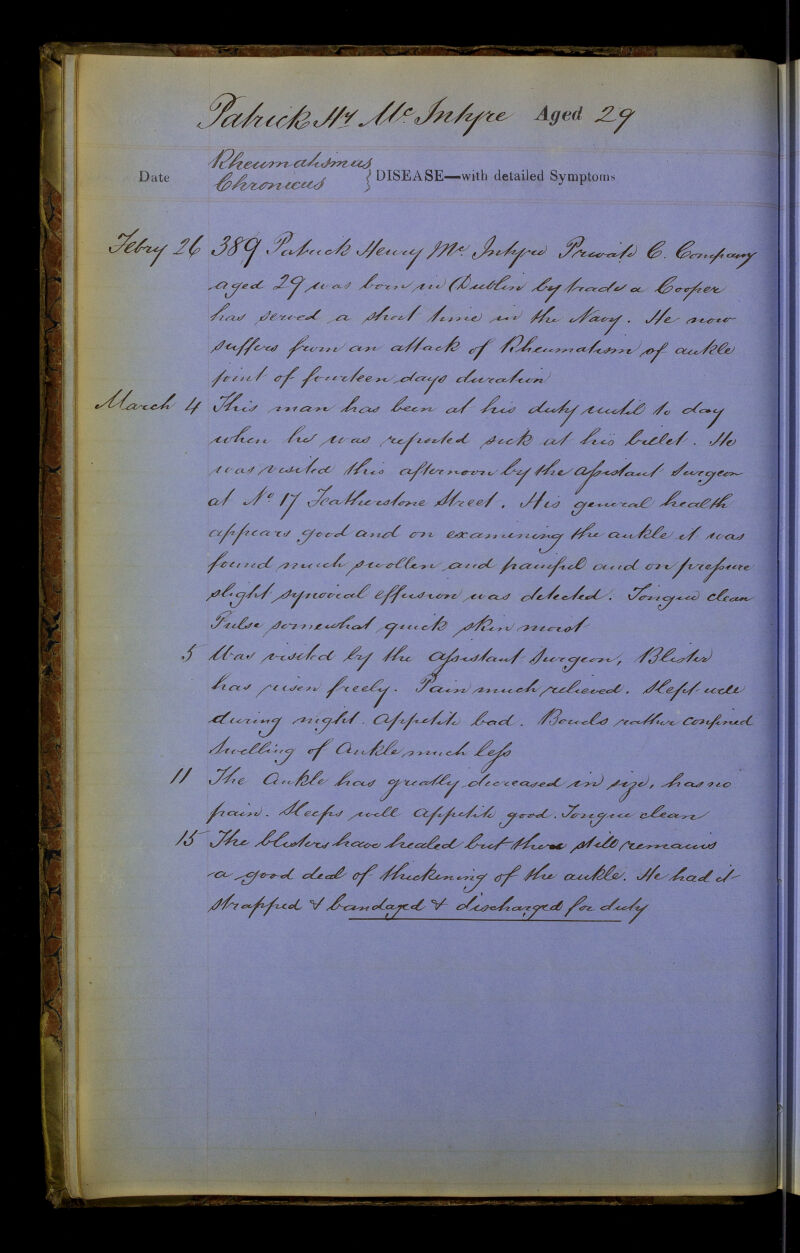 Patrick Hy McIntyre Aged 29
Rheumatismus
Date Chronicus } DISEASE—with detailed Symptoms
Febry 26 389 Patrick Henry McIntyre Private C. Company
aged 29 was born in Dublin by trade a Cooper
has served a short time in the Navy. He now
suffers from an attack of Rheumatism of ankle
joint of fourteen days duration
March 4 This man has been at his duty until to day
when he was reported sick at his billet. He
was visited this afternoon by the assistant Surgeon
at No 17 Featherstone Street. His general health
appears good and on examining the ankle it was
found much swollen and painful and on pressure
slight synovial effusion was detected. Tongue clean
Pulse somewhat quick skin moist
5 Was visited by the assistant Surgeon, Blister
has risen freely. Pain much relieved. Slept well
during night. Appetite bad. Bowels rather confined
Swelling of Ankle much less
11 The Ankle has greatly decreased in size, has no
pain. Sleeps well appetite good. Tongue clean
15 The blisters have healed but there still remains
a good deal of thickening of the ankle. He had it
strapped & bandaged & discharged for duty